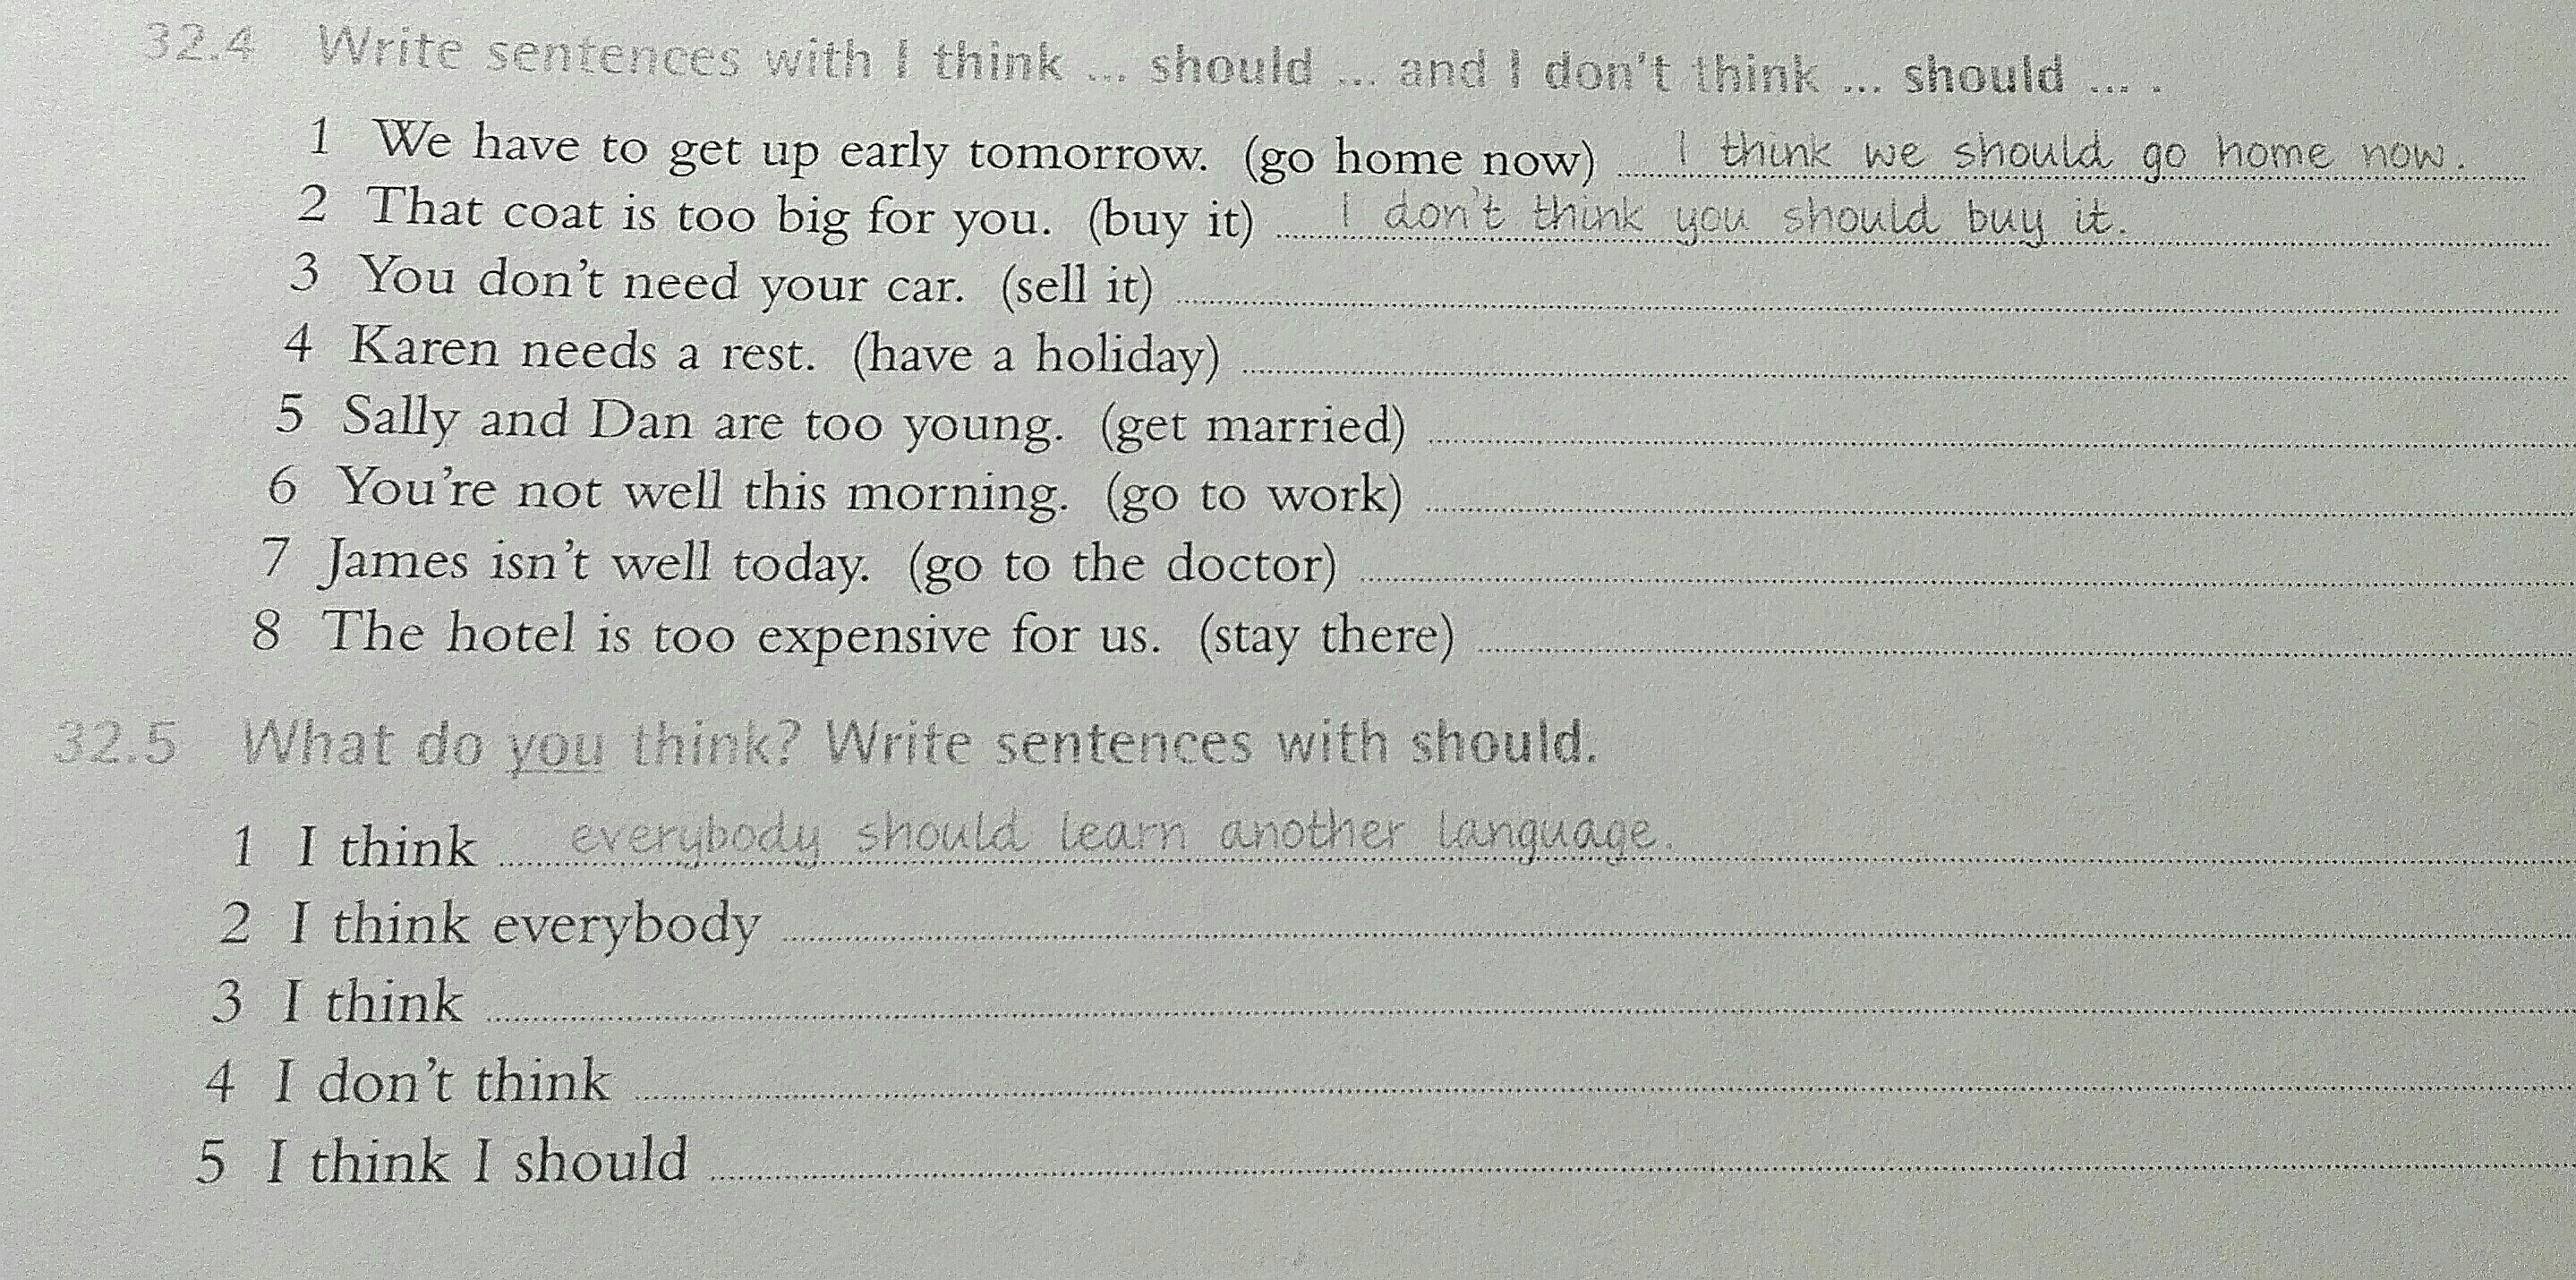 32.4 Write sentences with I think ... should ... and I don't think ... should ... .
1 We have to get up early tomorrow. (go home now) I think we should go home now.
2 That coat is too big for you. (buy it) I don't think you should buy it.
3 You don't need your car. (sell it)
4 Karen needs a rest. (have a holiday)
5 Sally and Dan are too young. (get married)
6 You're not well this morning. (go to work)
7 James isn't well today. (go to the doctor)
8 The hotel is too expensive for us. (stay there)
32.5 What do you think? Write sentences with should.
1 I think everybody should learn another language.
2 I think everybody
3 I think
4 I don't think
5 I think I should